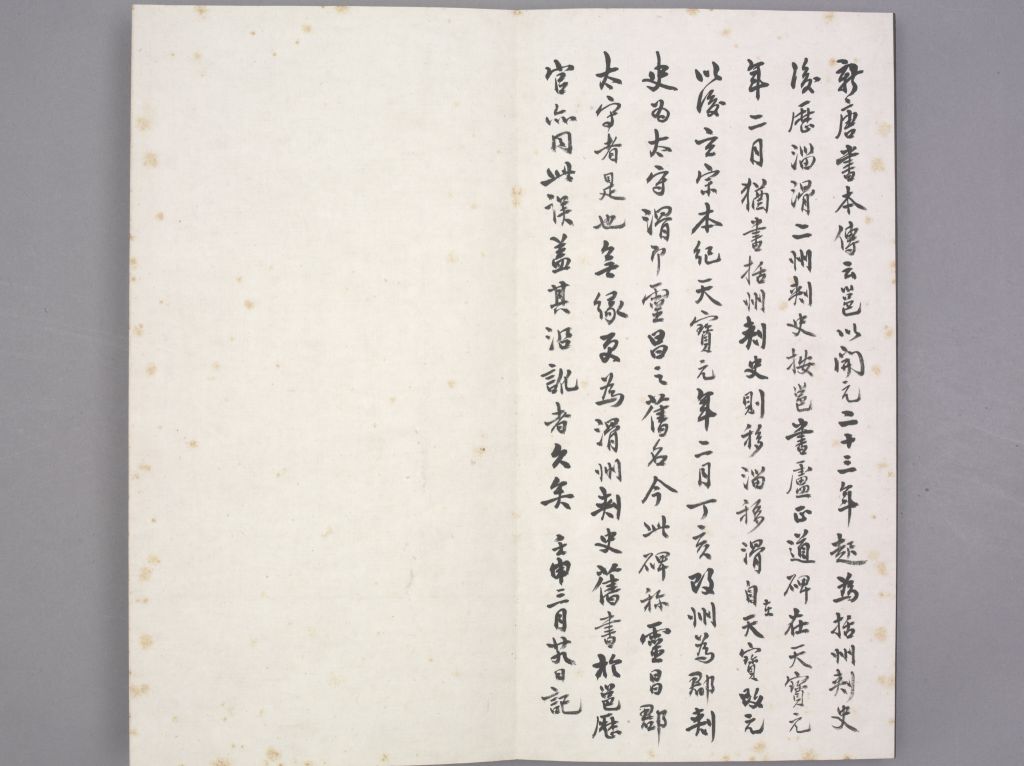 新唐書本傳云邕以開元二十三年起為括州刺史
後歷淄滑二州刺史按邕書盧正道碑在天寶元
年二月猶書括州刺史則移淄移滑自在天寶改元
以後玄宗本紀天寶元年二月丁亥改州為郡刺
史為太守滑即靈昌之舊名今此碑称靈昌郡
太守者是也無緣更為滑州刺史舊書於邕歷
官亦同此誤蓋其沿訛者久矣 壬申三月廿八日記